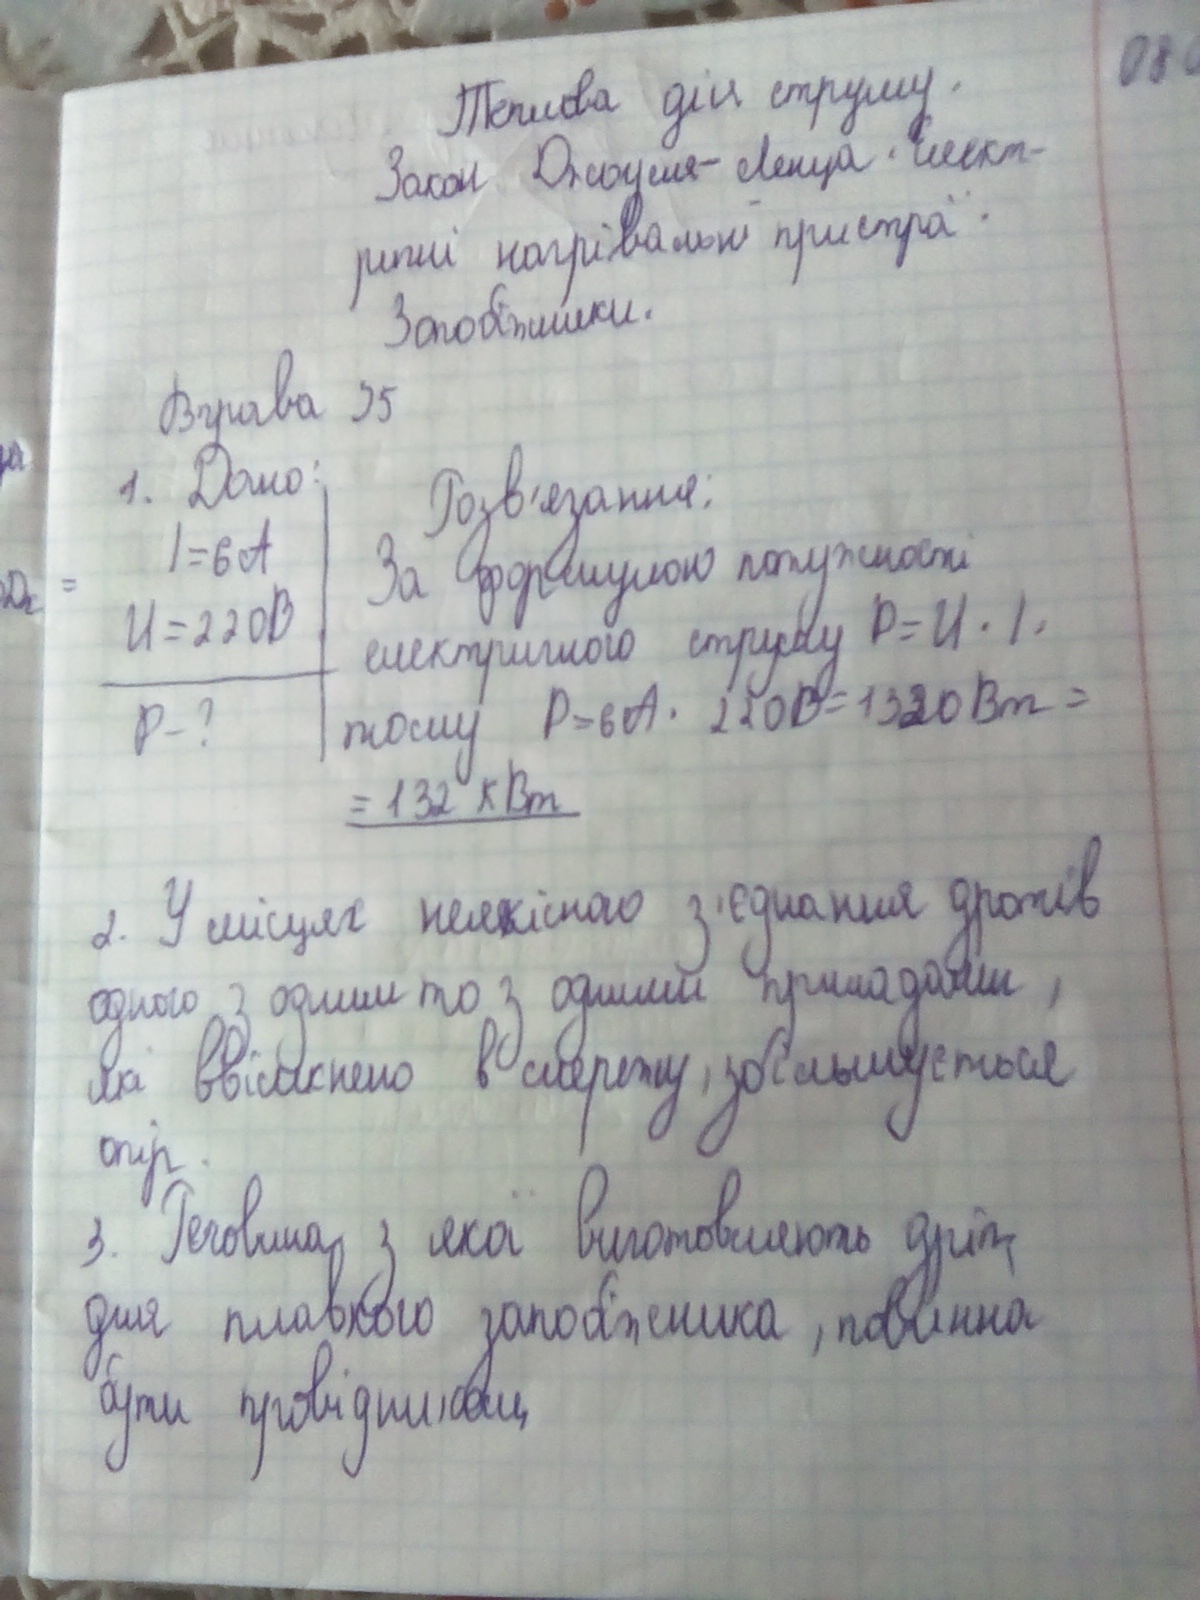 080
Теплова дія струму.
Закон Джоуля-Ленца. Елект-
ричні нагрівальні пристрої.
Запобіжники.
Вправа 35
1. Дано:
Розв'язання:
I=6А
За формулою потужності
U=220В
електричного струму P=U·I,
P-?
тому P=6А· 220В=1320Вт=
=132 кВт
2. У місцях неякісного з'єднання дротів
одного з одним то з одними приладами,
які ввімкнено в мережу, збільшується
опір.
3. Речовина, з якої виготовляють дріт,
для плавкого запобіжника, повинна
бути провідником